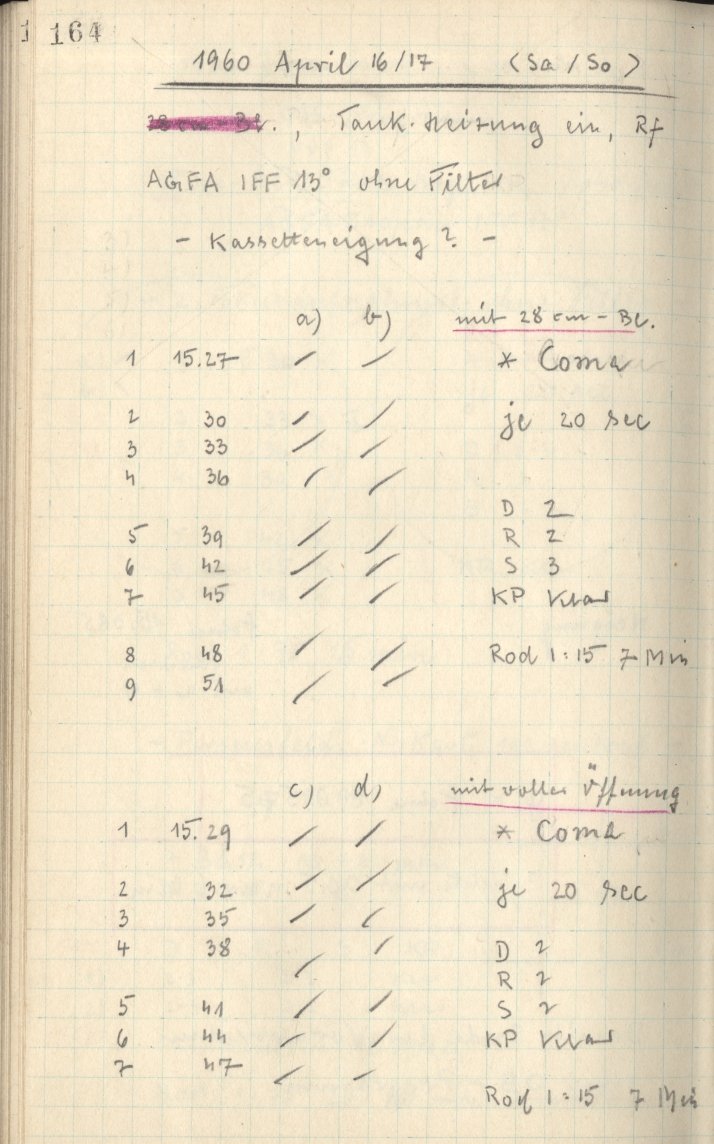 164
1960 April 16/17 (Sa/So)
28 cm-Bl., Tank-Heizung ein, Rf
AGFA IFF 13° ohne Filter
- Kassetteneigung? -
a) b) mit 28 cm-Bl.
1 15.27 / / * Coma
2 30 / / je 20 sec
3 33 / /
4 36 / /
D 2
5 39 / / R 2
6 42 / / S 3
7 45 / / KP Klar
8 48 / / Rod 1:15 7 Min
9 51 / /
c) d) mit voller Öffnung
1 15.29 / / * Coma
2 32 / / je 20 sec
3 35 / /
4 38 / / D 2
R 2
5 41 / / S 2
6 44 / / KP Klar
7 47 / /
Rod 1:15 7 Min